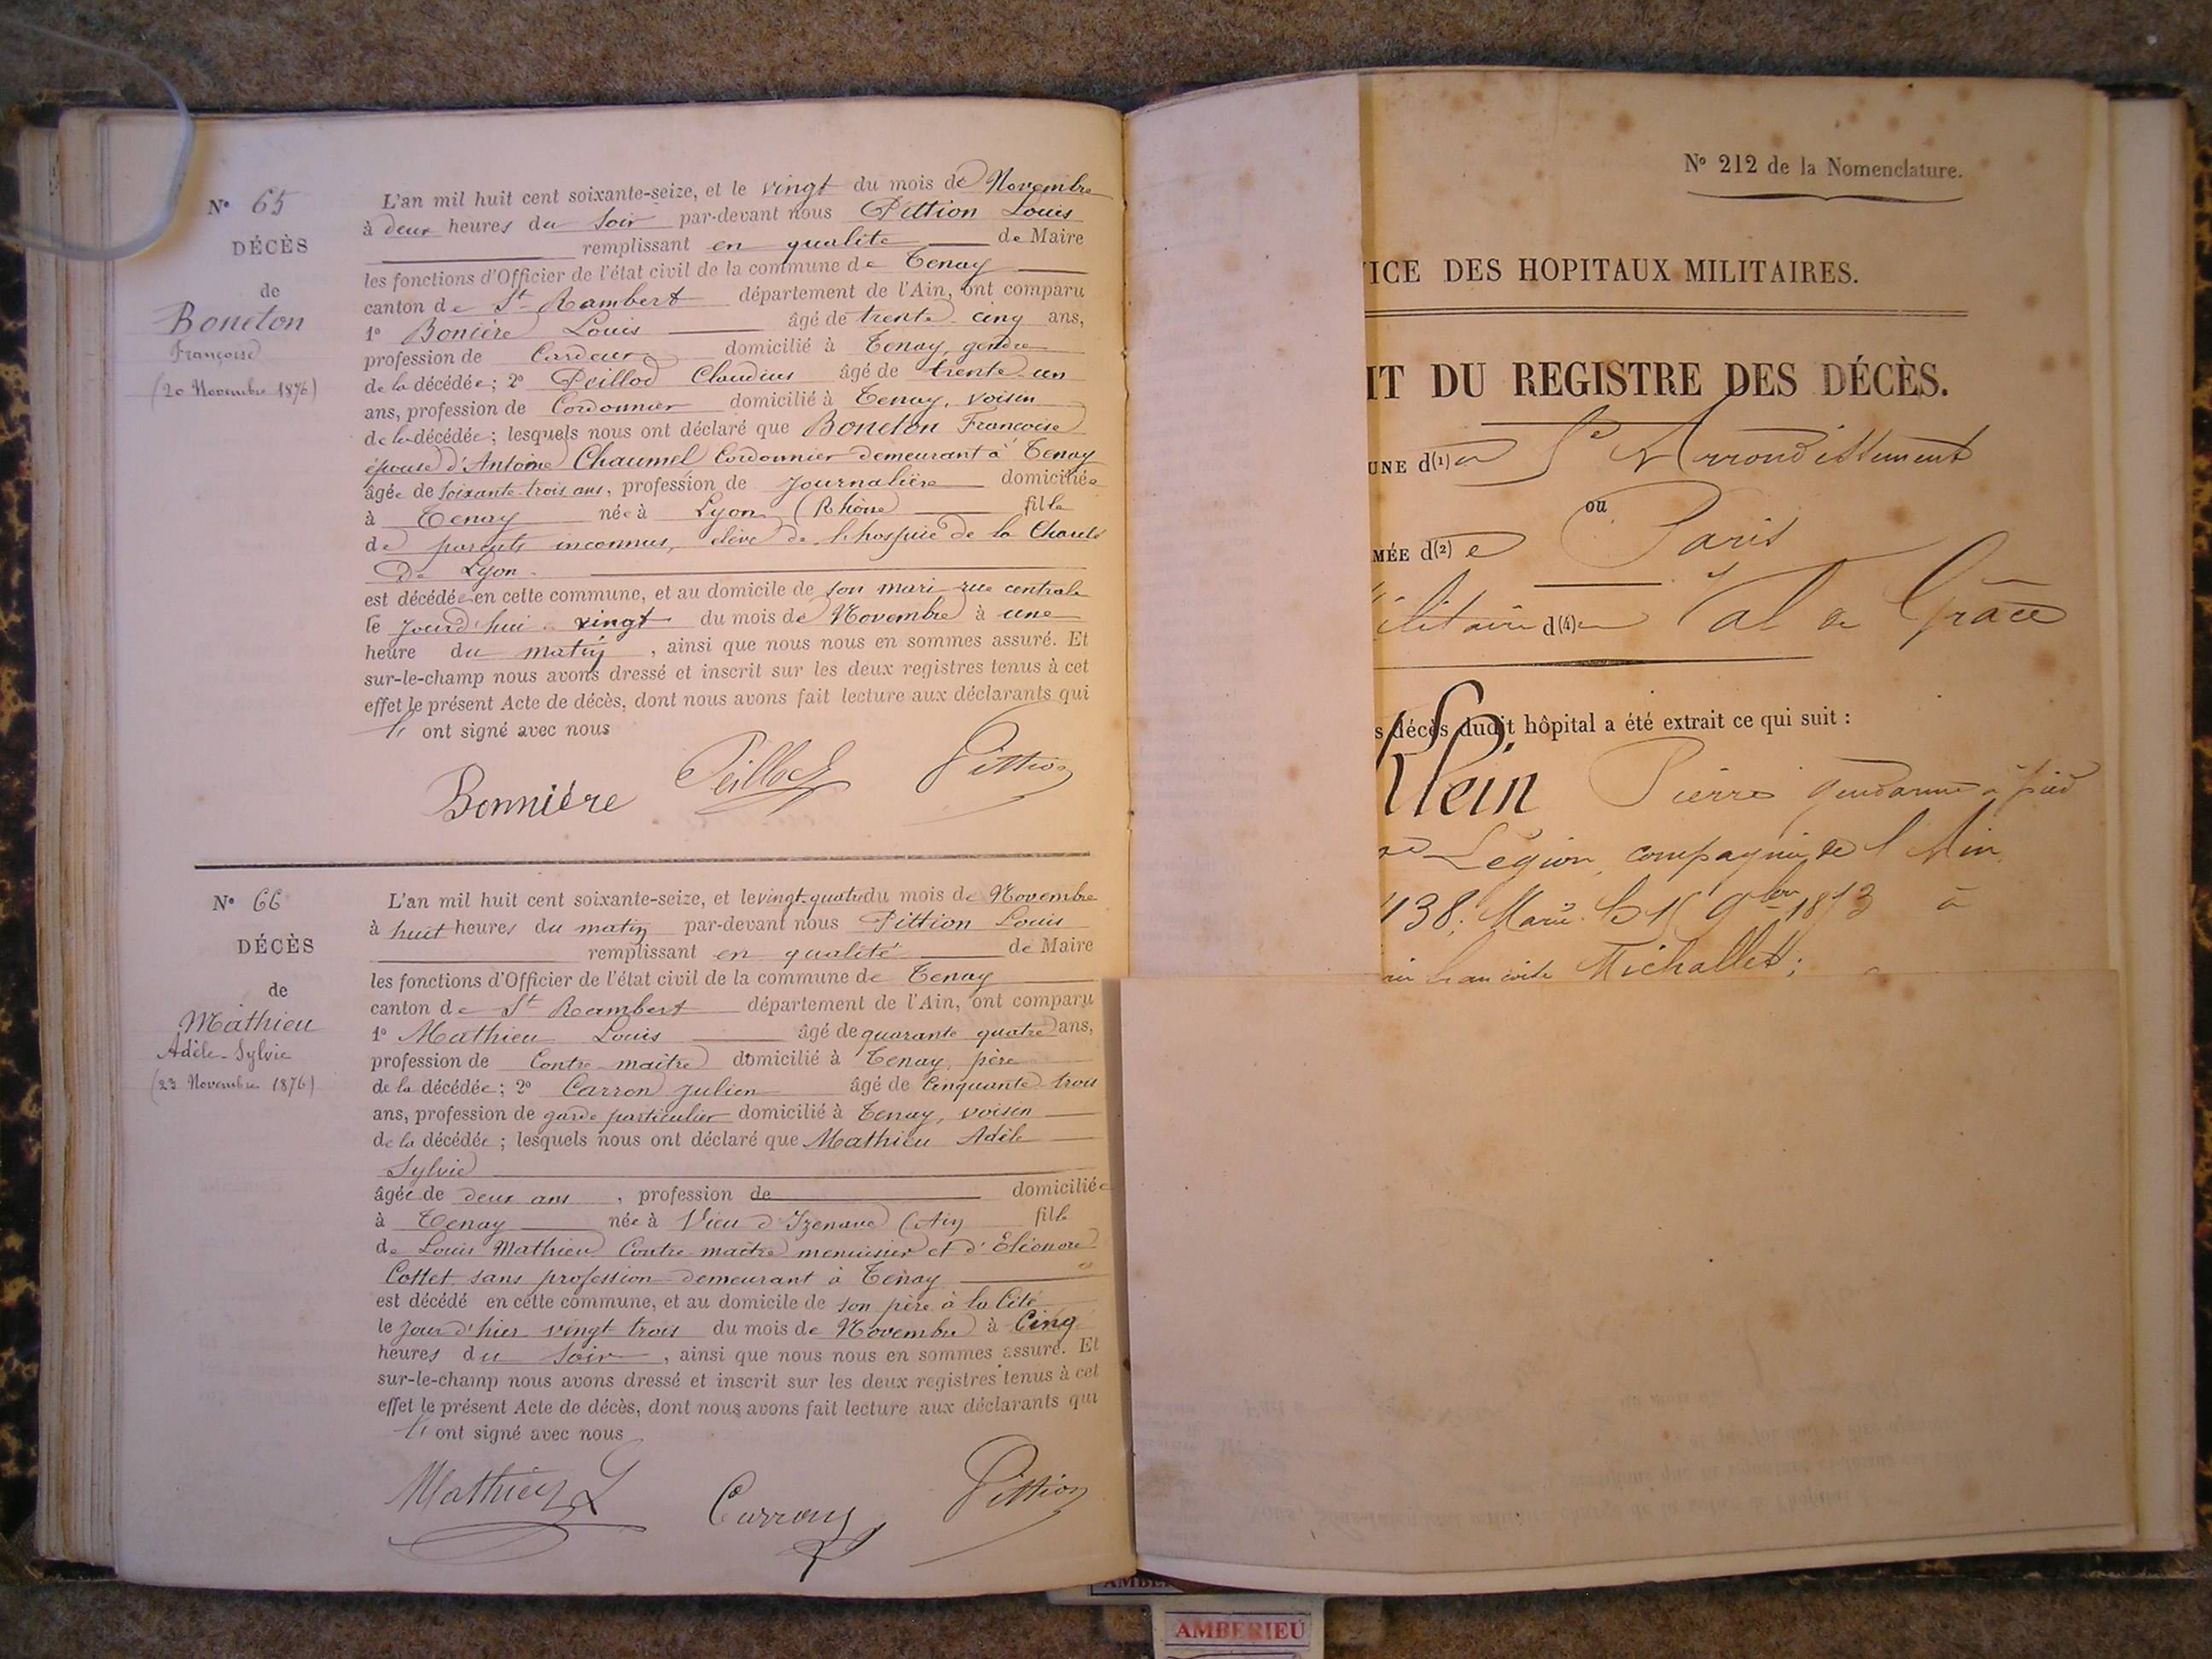 N° 65
DÉCÈS
de
Boneton
Françoise
(20 Novembre 1876)
L'an mil huit cent soixante-seize, et le vingt du mois de Novembre
à deux heures du soir par-devant nous Pittion Louis
remplissant en qualité de Maire
les fonctions d'Officier de l'état civil de la commune de Tenay
canton de St Rambert département de l'Ain, ont comparu
1° Bonière Louis âgé de trente-cinq ans,
profession de Cardeur domicilié à Tenay, gendre
de la décédée; 2° Peillod Claudius âgé de trente-un
ans, profession de Cordonnier domicilié à Tenay, voisin
de la décédée; lesquels nous ont déclaré que Boneton Françoise
épouse d'Antoine Chaumel Cordonnier demeurant à Tenay
âgée de soixante-trois ans, profession de journalière domiciliée
à Tenay née à Lyon (Rhône) fille
de parents inconnus, élève de l'hospice de la Charité
De Lyon.
est décédée en cette commune, et au domicile de son mari rue centrale
le jourd'hui vingt du mois de Novembre à une
heure du matin, ainsi que nous nous en sommes assuré. Et
sur-le-champ nous avons dressé et inscrit sur les deux registres tenus à cet
effet le présent Acte de décès, dont nous avons fait lecture aux déclarants qui
ont signé avec nous
Bonnière Peillod Pittion
N° 66
DÉCÈS
de
Mathieu
Adèle-Sylvie
(23 Novembre 1876)
L'an mil huit cent soixante-seize, et le vingt-quatre du mois de Novembre
à huit heures du matin par-devant nous Pittion Louis
remplissant en qualité de Maire
les fonctions d'Officier de l'état civil de la commune de Tenay
canton de St Rambert département de l'Ain, ont comparu
1° Mathieu Louis âgé de quarante quatre ans,
profession de Contre-maître domicilié à Tenay, père
de la décédée; 2° Carron Julien âgé de Cinquante-trois
ans, profession de garde particulier domicilié à Tenay, voisin
de la décédée; lesquels nous ont déclaré que Mathieu Adèle
Sylvie
âgée de deux ans, profession de domiciliée
à Tenay née à Vieu d'Izenave (Ain) fille
de Louis Mathieu Contre-maître menuisier et d'Eléonore
Cottet sans profession demeurant à Tenay
est décédé en cette commune, et au domicile de son père à la Cité
le jour d'hier vingt trois du mois de Novembre à Cinq
heures du soir, ainsi que nous nous en sommes assuré. Et
sur-le-champ nous avons dressé et inscrit sur les deux registres tenus à cet
effet le présent Acte de décès, dont nous avons fait lecture aux déclarants qui
ont signé avec nous
Mathieu L Carron Pittion
N° 212 de la Nomenclature.
ICE DES HOPITAUX MILITAIRES.
IT DU REGISTRE DES DÉCÈS.
UNE d(1)u 5e Arrondissement
ou
MÉE d(2)e Paris
ilitaire d(4)u Val de Grâce
s décès dudit hôpital a été extrait ce qui suit :
Klein Pierre gendarme à pied
Légion, compagnie de l'Ain
438; Marié le 15 9bre 1873 à
Michallet;
AMBERIEU